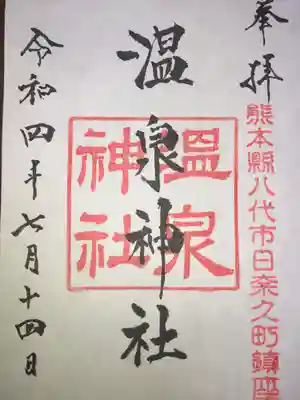 奉拝
熊本縣八代市日奈久町鎮座
温泉神社
温泉
神社
令和四年七月十四日